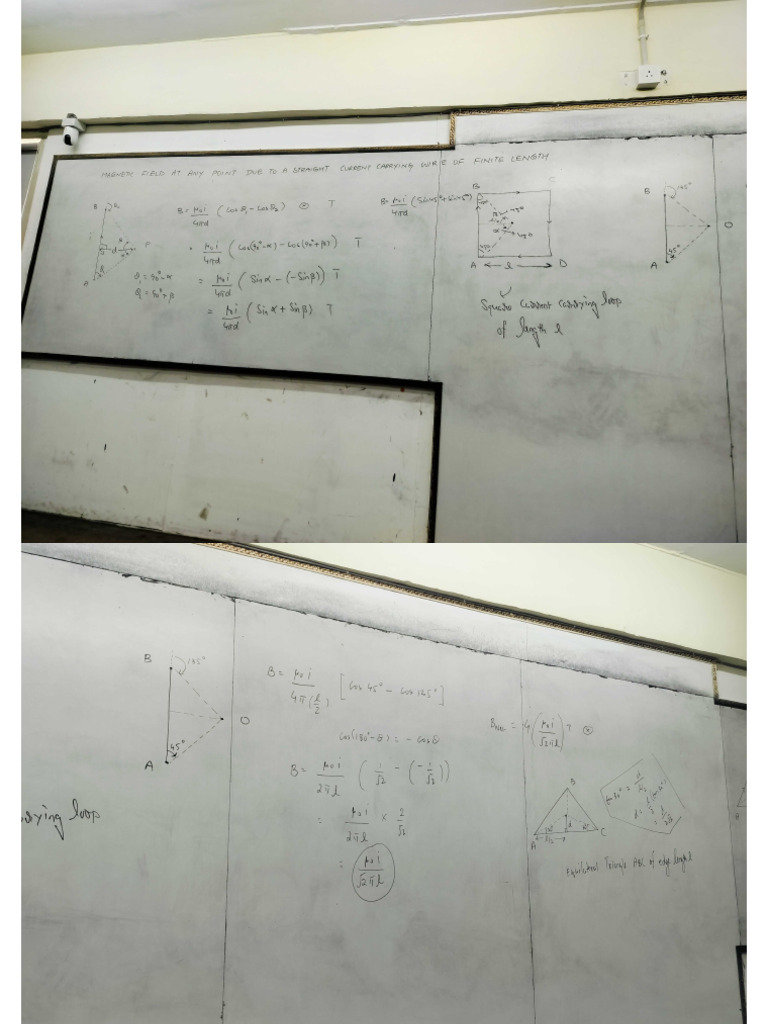 MAGNETIC FIELD AT ANY POINT DUE TO A STRAIGHT CURRENT CARRYING WIRE OF FINITE LENGTH
B = μ₀i/4πd (Cosθ₁ - Cosθ₂) ⊗ T
= μ₀i/4πd (Cos(90°-α) - Cos(90°+β)) T
θ₁ = 90°-α
θ₂ = 90°+β
= μ₀i/4πd (Sinα - (-Sinβ)) T
= μ₀i/4πd (Sinα + Sinβ) T
B
i
d
P
A
B = μ₀i/4πd (Sin45°+Sin45°)
B C
A ← l → D
Square current carrying loop
of length l
B 145°
O
A 45°
B 145°
O
A 45°
rrying loop
B = μ₀i/4π(l/2) [Cos 45° - Cos 145°]
Cos(180°-θ) = - Cosθ
B = μ₀i/2πl (1/√2 - (-1/√2))
= μ₀i/2πl × 2/√2
= μ₀i/√2πl
= 4(μ₀i/√2πl) T ⊗
B
d
A l/2 C
Equilateral Triangle ABC of edge length l